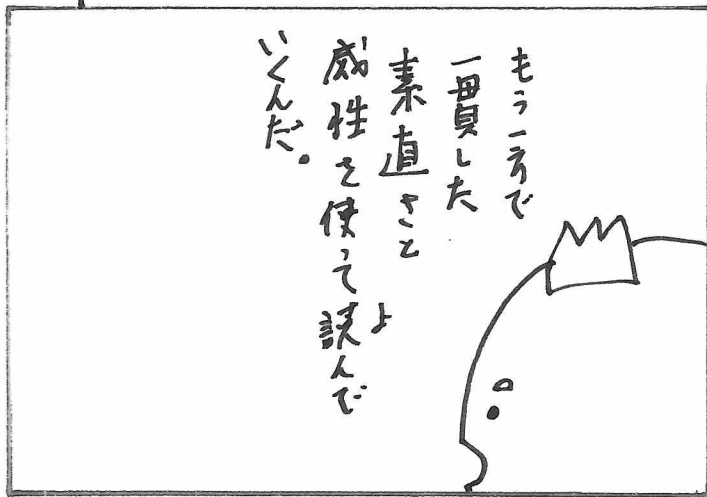 もう一方で
一貫した
素直さと
感性を使って読んで
よ
いくんだ。